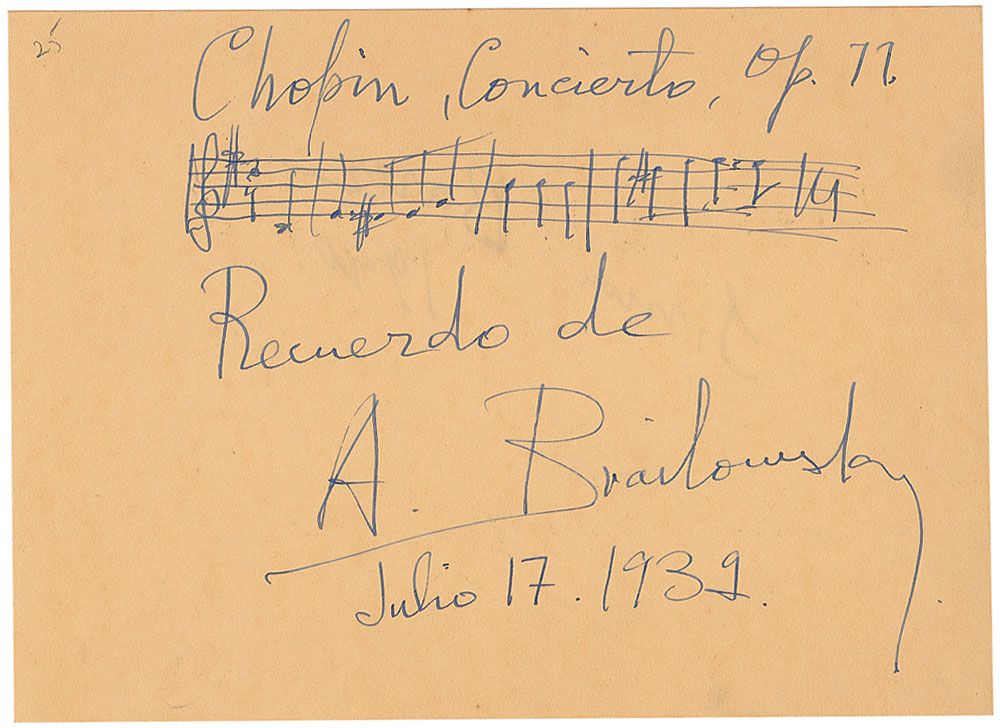 25
Chopin, Concierto, Op. 11.
Recuerdo de
A. Brailowsky
Julio 17. 1939.